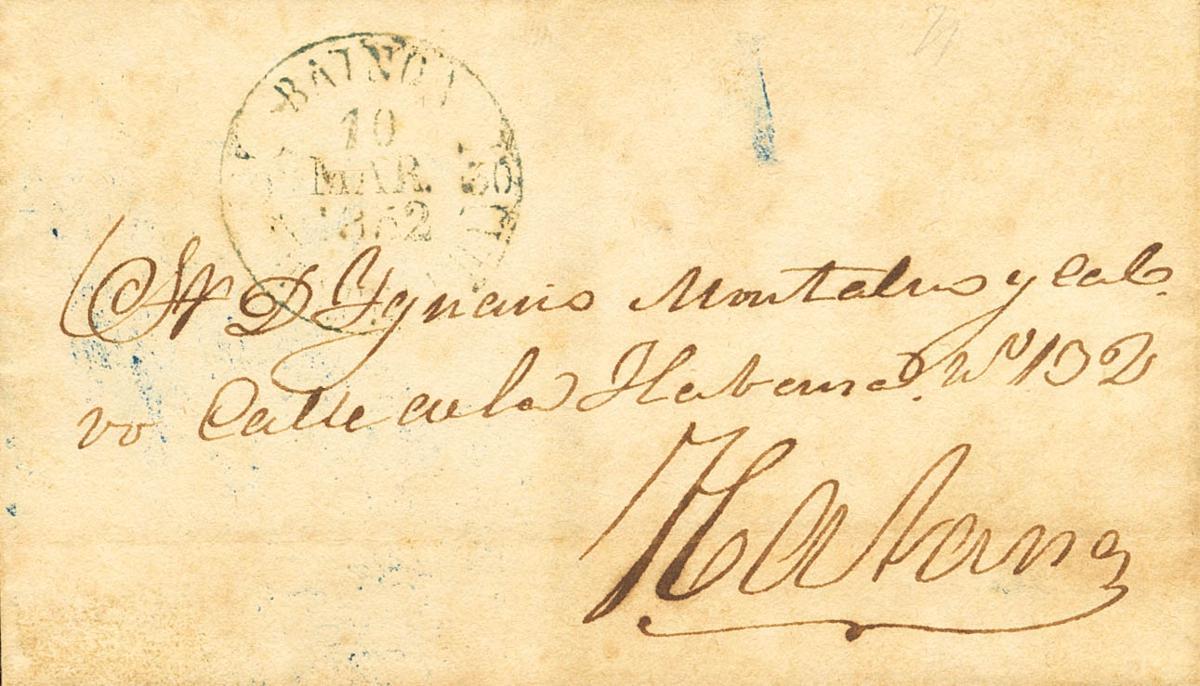 BAINOA
10
MAR. 30
1852
Sr D Ygnacio Montalvo y Cal
vo Calle de la Habana Nº 132
Habana